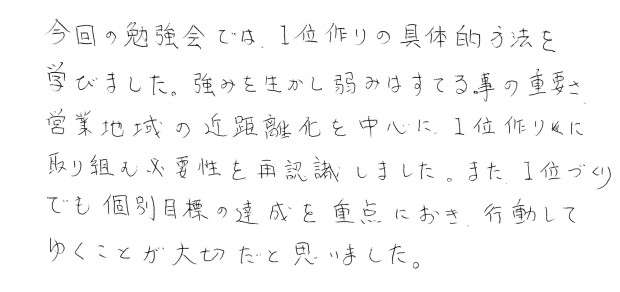 今回の勉強会では、1位作りの具体的方法を
学びました。強みを生かし弱みはすてる事の重要さ、
営業地域の近距離化を中心に、1位作りに
取り組む必要性を再認識しました。また、1位づくり
でも個別目標の達成を重点におき、行動して
ゆくことが大切だと思いました。